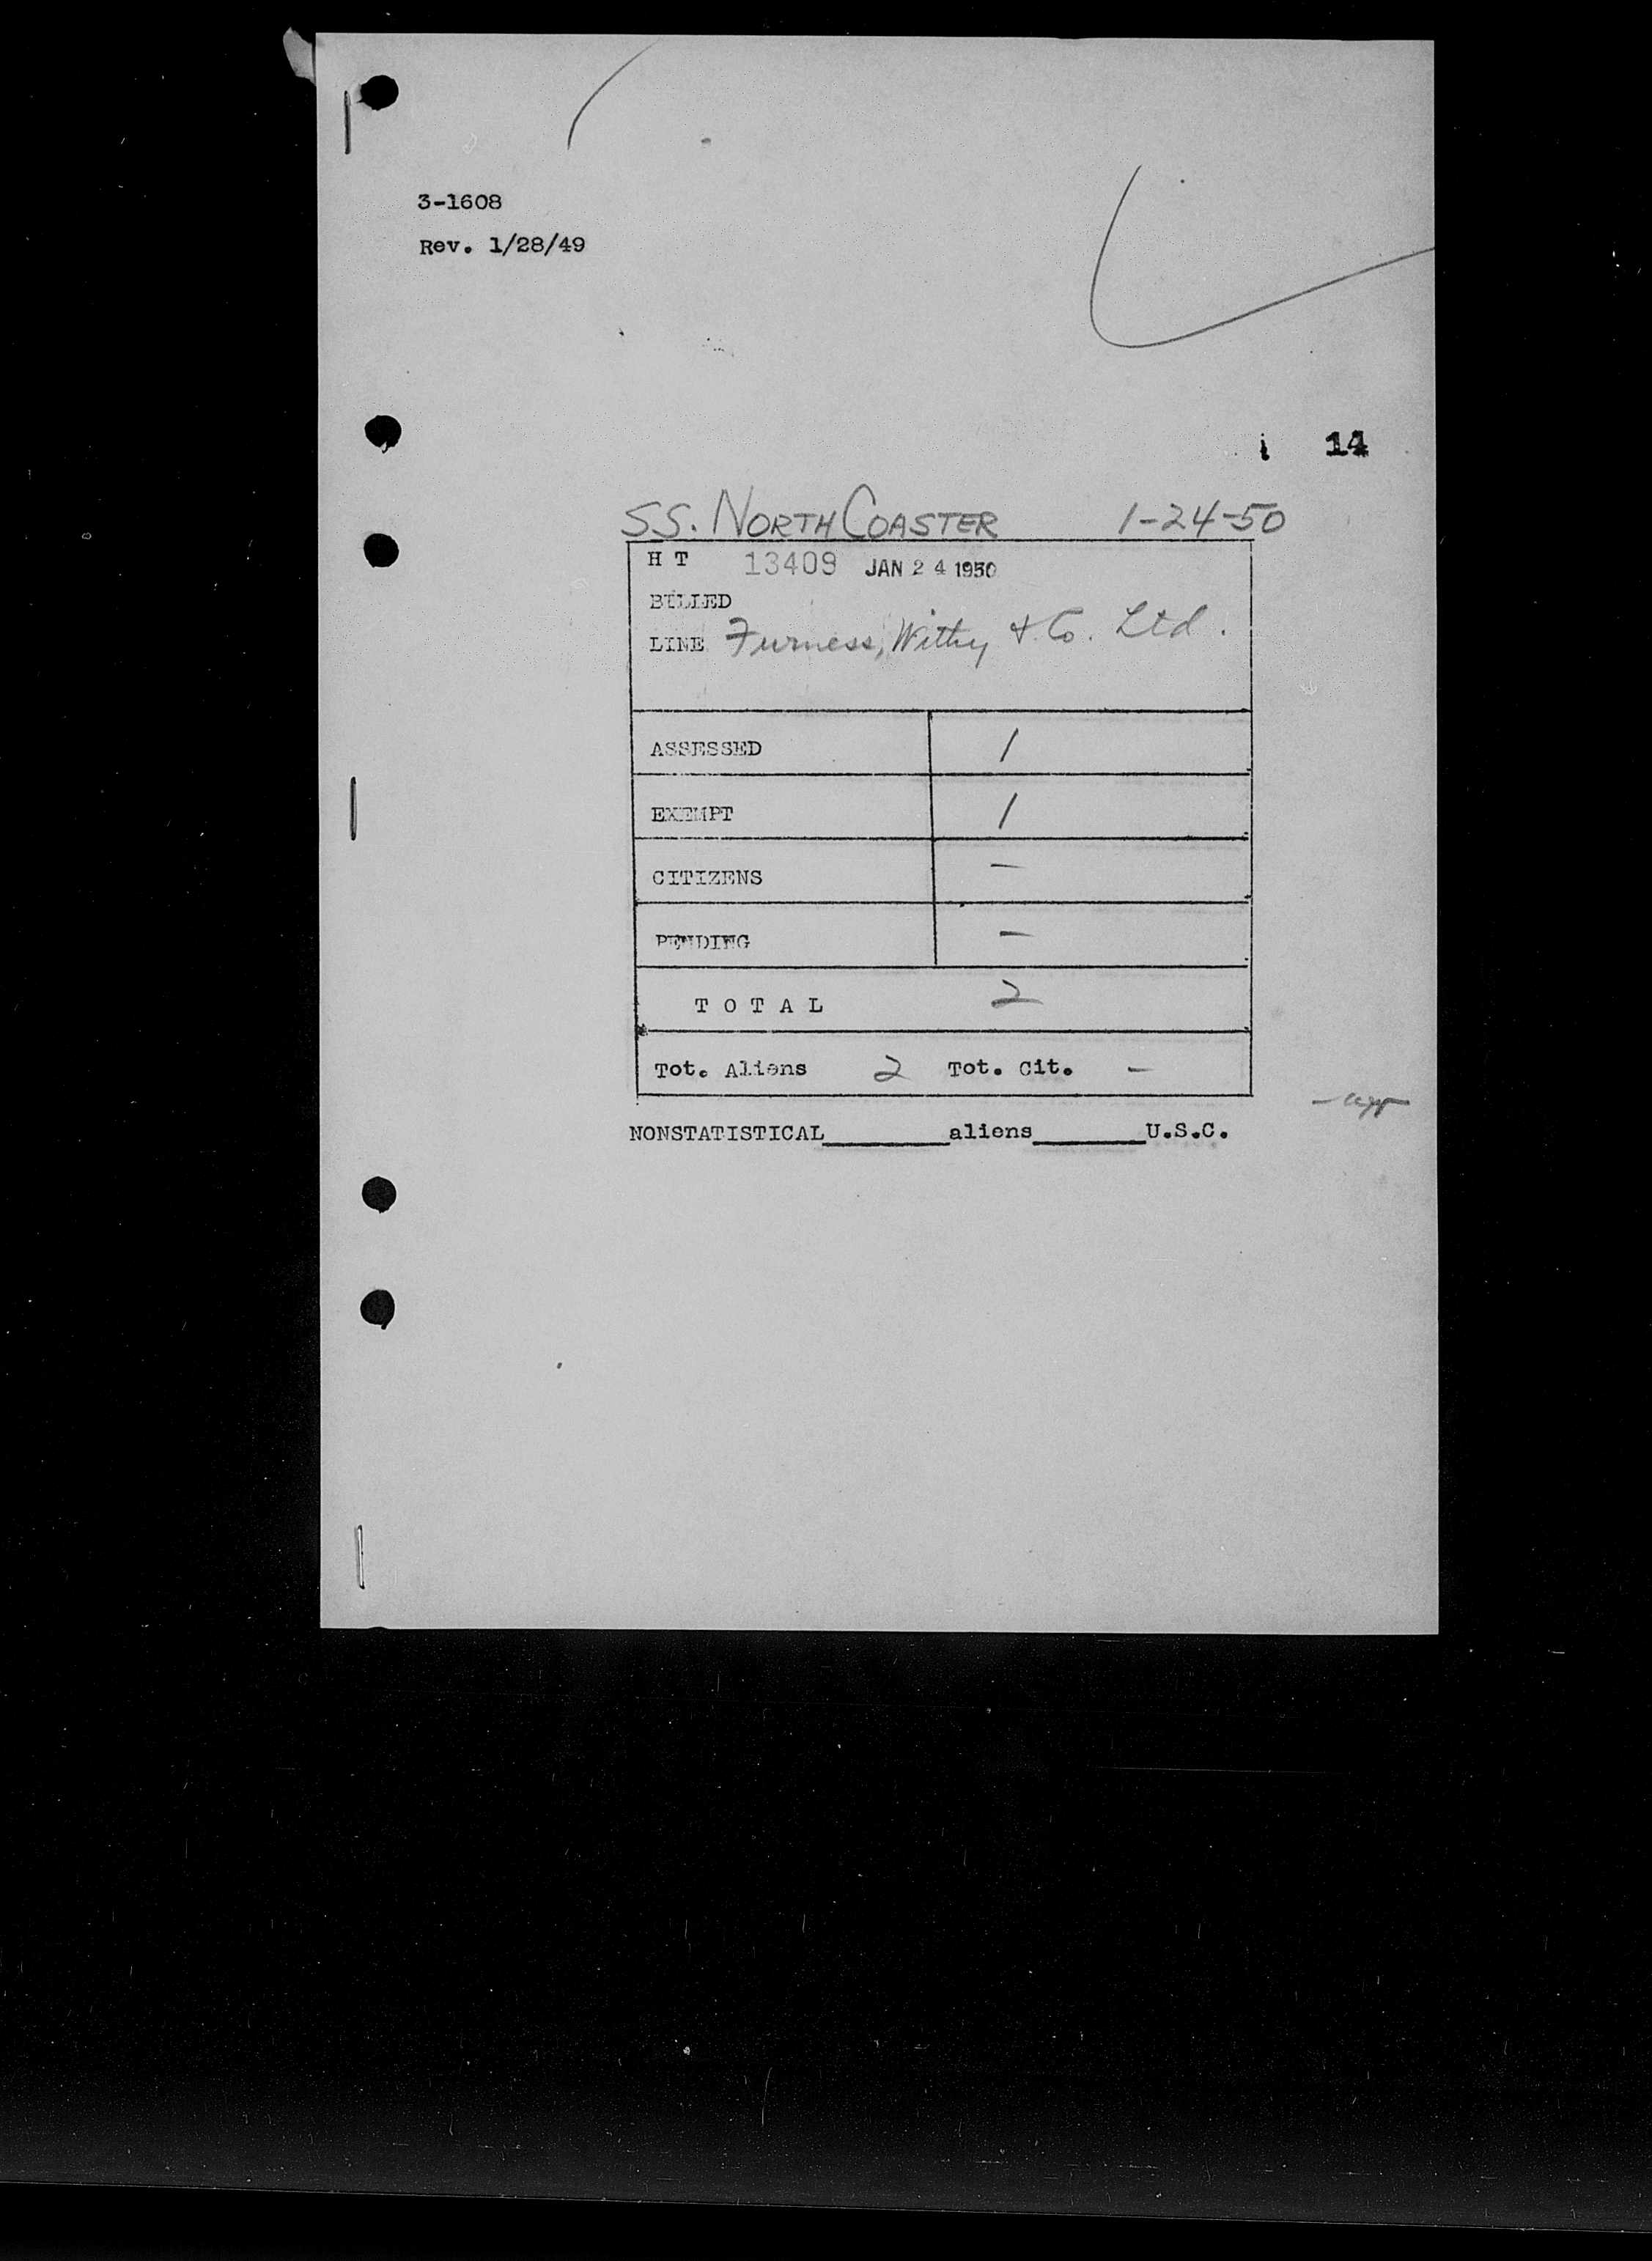 3-1608
Rev. 1/28/49
14
S.S. NORTH COASTER 1-24-50
H T 13409 JAN 24 1950
BILLED
LINE Furness, Withy & Co. Ltd.
ASSESSED 1
EXEMPT 1
CITIZENS -
PENDING -
T O T A L 2
Tot. Aliens 2 Tot. Cit. -
NONSTATISTICAL________aliens_______U.S.C.